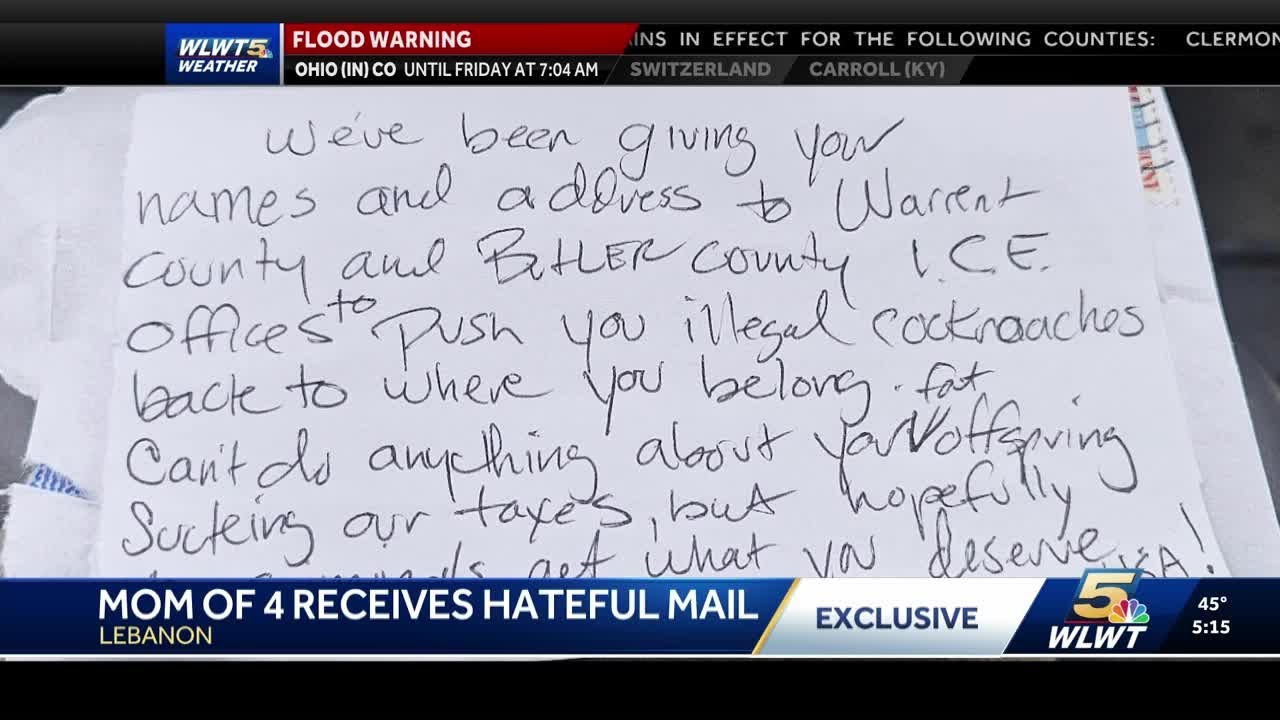 WLWT 5
WEATHER
FLOOD WARNING
INS IN EFFECT FOR THE FOLLOWING COUNTIES: CLERMON
OHIO (IN) CO UNTIL FRIDAY AT 7:04 AM
SWITZERLAND
CARROLL (KY)
We've been giving your
names and address to Warrent
County and ButLER County I.C.E.
offices to push you illegal cockroaches
back to where you belong.
Can't do anything about your fat offspring
Sucking our taxes, but hopefully
get what you deserve
MOM OF 4 RECEIVES HATEFUL MAIL
LEBANON
EXCLUSIVE
5
WLWT
45°
5:15